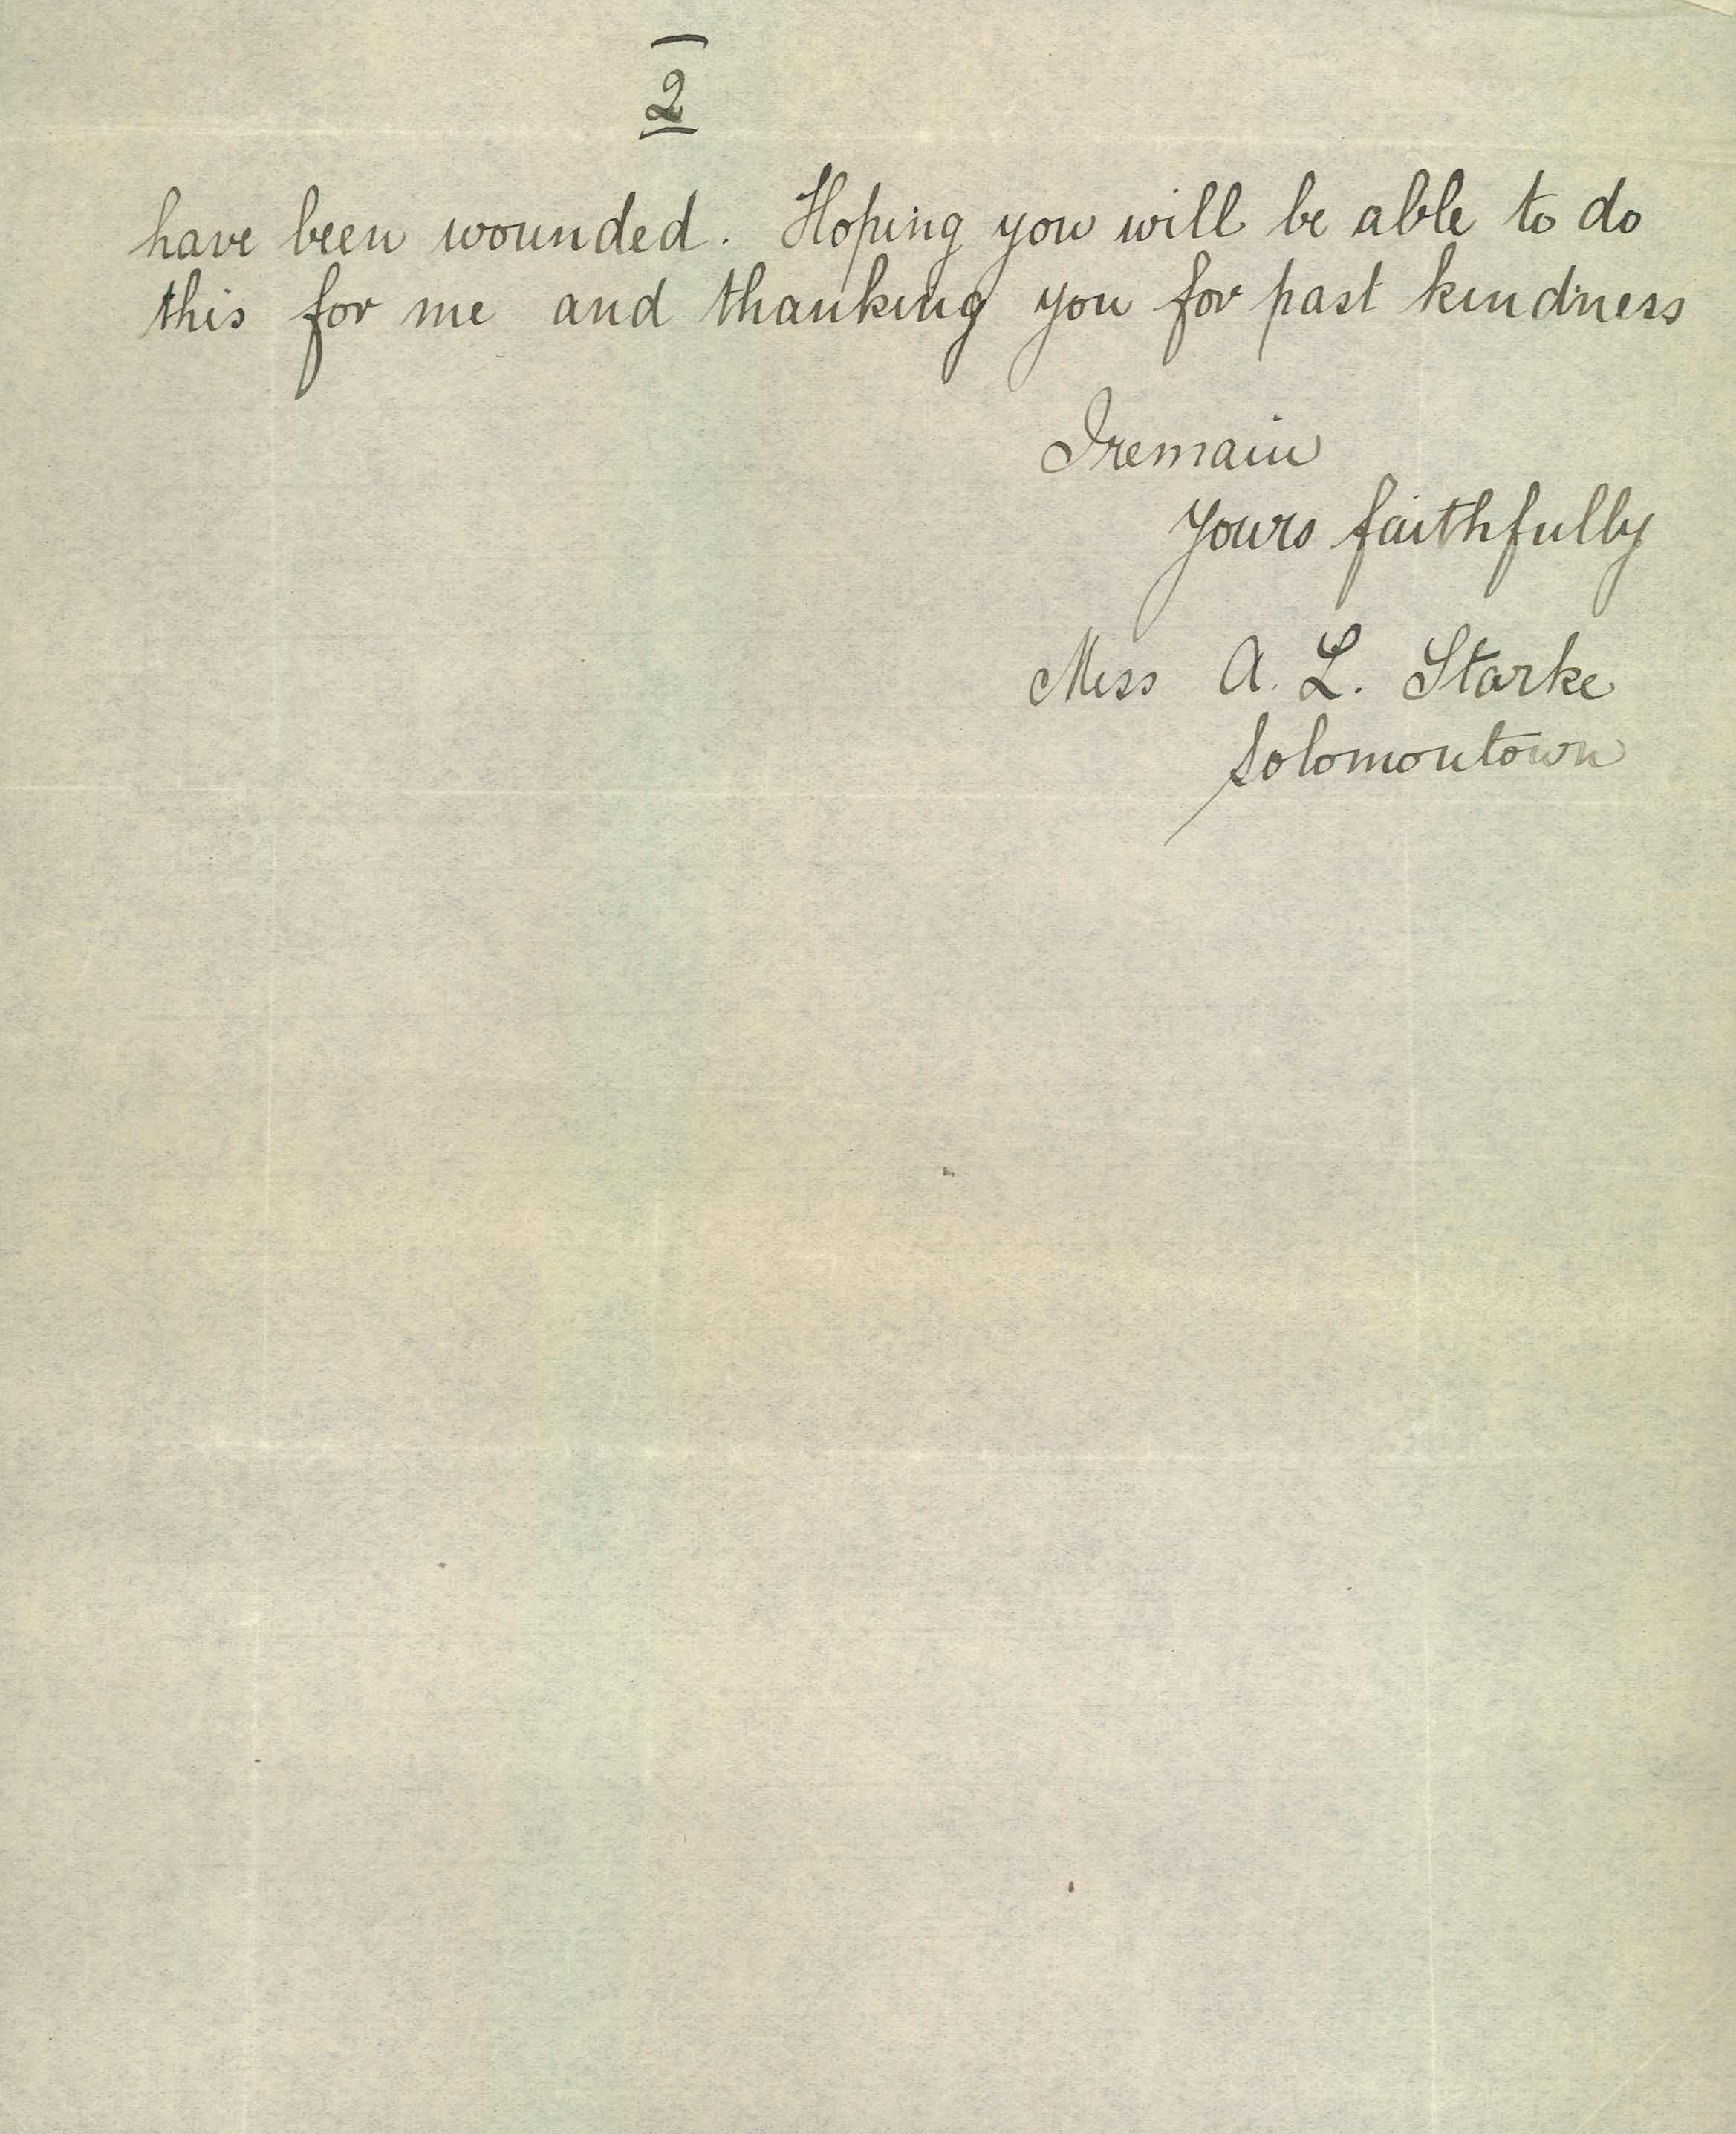 2
have been wounded. Hoping you will be able to do
this for me and thanking you for past kindness
I remain
Yours faithfully
Miss A. L. Starke
Solomontown